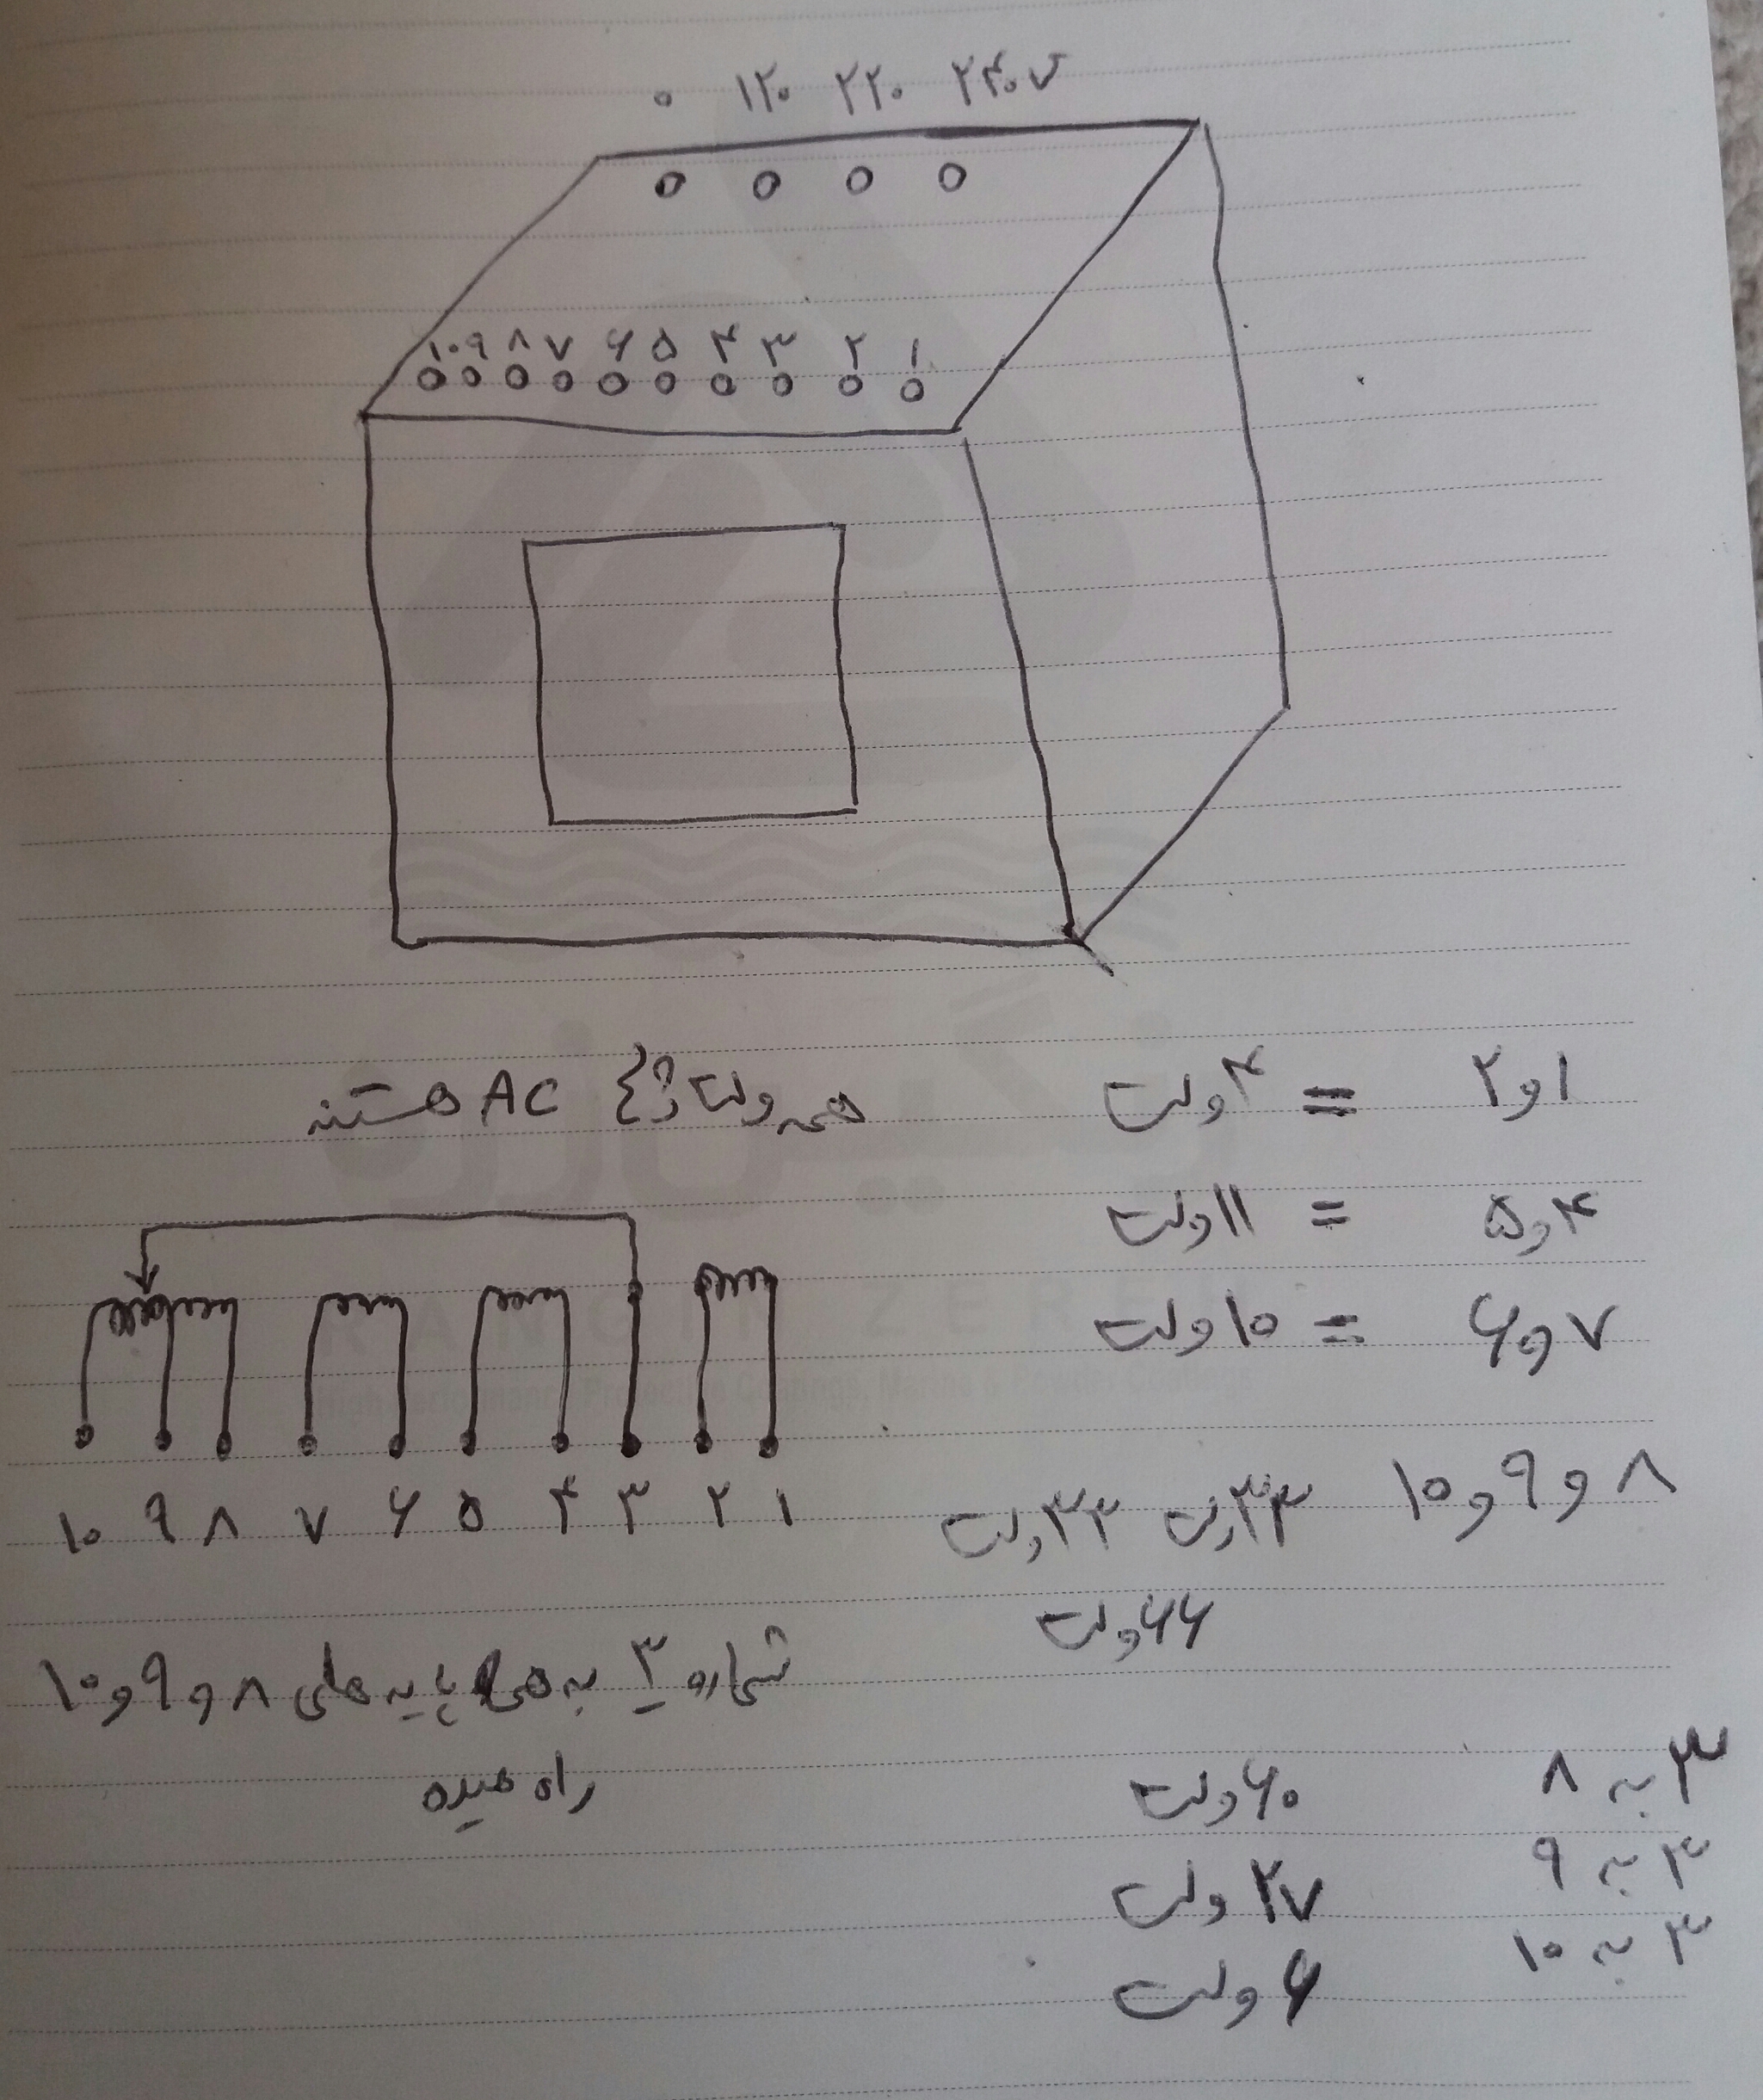 ۰ ۱۲۰ ۲۲۰ ۲۴۰V
۱۰ ۹ ۸ ۷ ۶ ۵ ۴ ۳ ۲ ۱
۱ و ۲ = ۴ ولت
همه ولتاژها AC هستند
۴ و ۵ = ۱۱ ولت
۷ و ۶ = ۱۰ ولت
۸ و ۹ و ۱۰ ۳۳ ولت ۳۳ ولت
۶۶ ولت
۱۰ ۹ ۸ ۷ ۶ ۵ ۴ ۳ ۲ ۱
شماره ۳ به همه پایه های ۸ و ۹ و ۱۰
راه میده
۳ به ۸ ۶۰ ولت
۳ به ۹ ۲۷ ولت
۳ به ۱۰ ۶ ولت